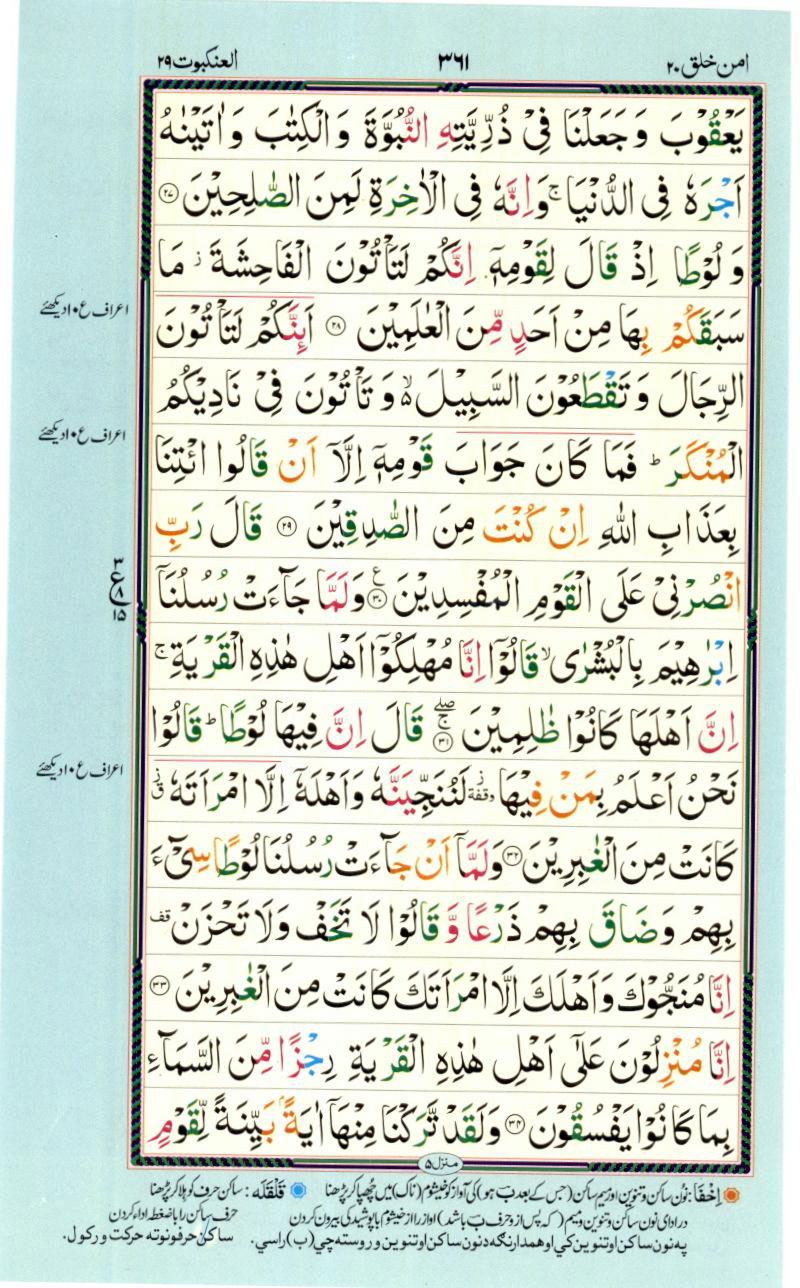 امن خلق ۲۰
۳۶۱
العنکبوت ۲۹
يَعْقُوْبَ وَجَعَلْنَا فِىْ ذُرِّيَّتِهِ النُّبُوَّةَ وَالْكِتٰبَ وَاٰتَيْنٰهُ
اَجْرَهٗ فِى الدُّنْيَا ۚ وَاِنَّهٗ فِى الْاٰخِرَةِ لَمِنَ الصّٰلِحِيْنَ ۝۲۷
وَلُوْطًا اِذْ قَالَ لِقَوْمِهٖۤ اِنَّكُمْ لَتَاْتُوْنَ الْفَاحِشَةَ ز مَا
سَبَقَكُمْ بِهَا مِنْ اَحَدٍ مِّنَ الْعٰلَمِيْنَ ۝۲۸ اَئِنَّكُمْ لَتَاْتُوْنَ
الرِّجَالَ وَتَقْطَعُوْنَ السَّبِيْلَ ۙ۬ وَتَاْتُوْنَ فِىْ نَادِيْكُمُ
الْمُنْكَرَ ؕ فَمَا كَانَ جَوَابَ قَوْمِهٖۤ اِلَّاۤ اَنْ قَالُوا ائْتِنَا
بِعَذَابِ اللّٰهِ اِنْ كُنْتَ مِنَ الصّٰدِقِيْنَ ۝۲۹ قَالَ رَبِّ
انْصُرْنِىْ عَلَى الْقَوْمِ الْمُفْسِدِيْنَ ۝۳۰ ع وَلَمَّا جَآءَتْ رُسُلُنَاۤ
اِبْرٰهِيْمَ بِالْبُشْرٰى ۙ قَالُوْۤا اِنَّا مُهْلِكُوْۤا اَهْلِ هٰذِهِ الْقَرْيَةِ ۚ
اِنَّ اَهْلَهَا كَانُوْا ظٰلِمِيْنَ ۝۳۱ صلے ج قَالَ اِنَّ فِيْهَا لُوْطًا ؕ قَالُوْا
نَحْنُ اَعْلَمُ بِمَنْ فِيْهَا وقفة ز لَنُنَجِّيَنَّهٗ وَاَهْلَهٗۤ اِلَّا امْرَاَتَهٗ ق ز
كَانَتْ مِنَ الْغٰبِرِيْنَ ۝۳۲ وَلَمَّاۤ اَنْ جَآءَتْ رُسُلُنَا لُوْطًا سِىْٓءَ
بِهِمْ وَضَاقَ بِهِمْ ذَرْعًا وَّقَالُوْا لَا تَخَفْ وَلَا تَحْزَنْ قف
اِنَّا مُنَجُّوْكَ وَاَهْلَكَ اِلَّا امْرَاَتَكَ كَانَتْ مِنَ الْغٰبِرِيْنَ ۝۳۳
اِنَّا مُنْزِلُوْنَ عَلٰٓى اَهْلِ هٰذِهِ الْقَرْيَةِ رِجْزًا مِّنَ السَّمَآءِ
بِمَا كَانُوْا يَفْسُقُوْنَ ۝۳۴ وَلَقَدْ تَّرَكْنَا مِنْهَاۤ اٰيَةًۢ بَيِّنَةً لِّقَوْمٍ
اعراف ع ۱۰ دیکھئے
اعراف ع ۱۰ دیکھئے
۳
ع ۸
۱۵
اعراف ع ۱۰ دیکھئے
منزل ۵
اِخفَا: نون ساکن و تنوین اور میم ساکن (جس کے بعد بَ ہو) کی آواز کو خیشوم (ناک) میں چھپا کر پڑھنا قَلْقَلَه: ساکن حرف کو ہلا کر پڑھنا
در ادای نون ساکن و تنوین و میم (که پس از و حرف بَ باشد) آواز را از خیشوم با پوشیدگی بیرون کردن حرف ساکن را با ضغط اداء کردن
په نون ساکن او تنوین کي او همدارنګه د نون ساکن او تنوین وروسته چي (ب) راسي. ساکن حرفونو ته حرکت ورکول.